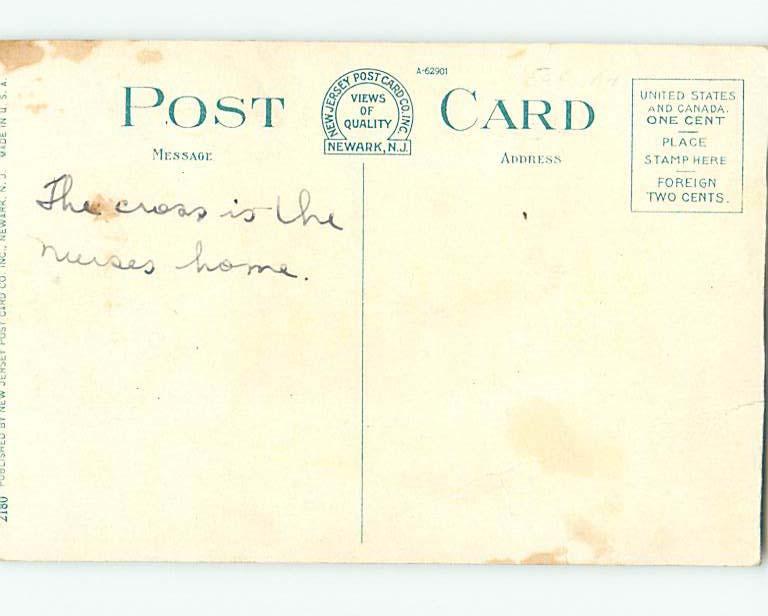 POST CARD
NEW JERSEY POST CARD CO. INC.
VIEWS
OF
QUALITY
NEWARK, N.J.
A-62901
UNITED STATES
AND CANADA.
ONE CENT
PLACE
STAMP HERE
FOREIGN
TWO CENTS.
MESSAGE
ADDRESS
The cross is the
nurses home.
2180 PUBLISHED BY NEW JERSEY POST CARD CO. INC., NEWARK, N. J. MADE IN U. S. A.